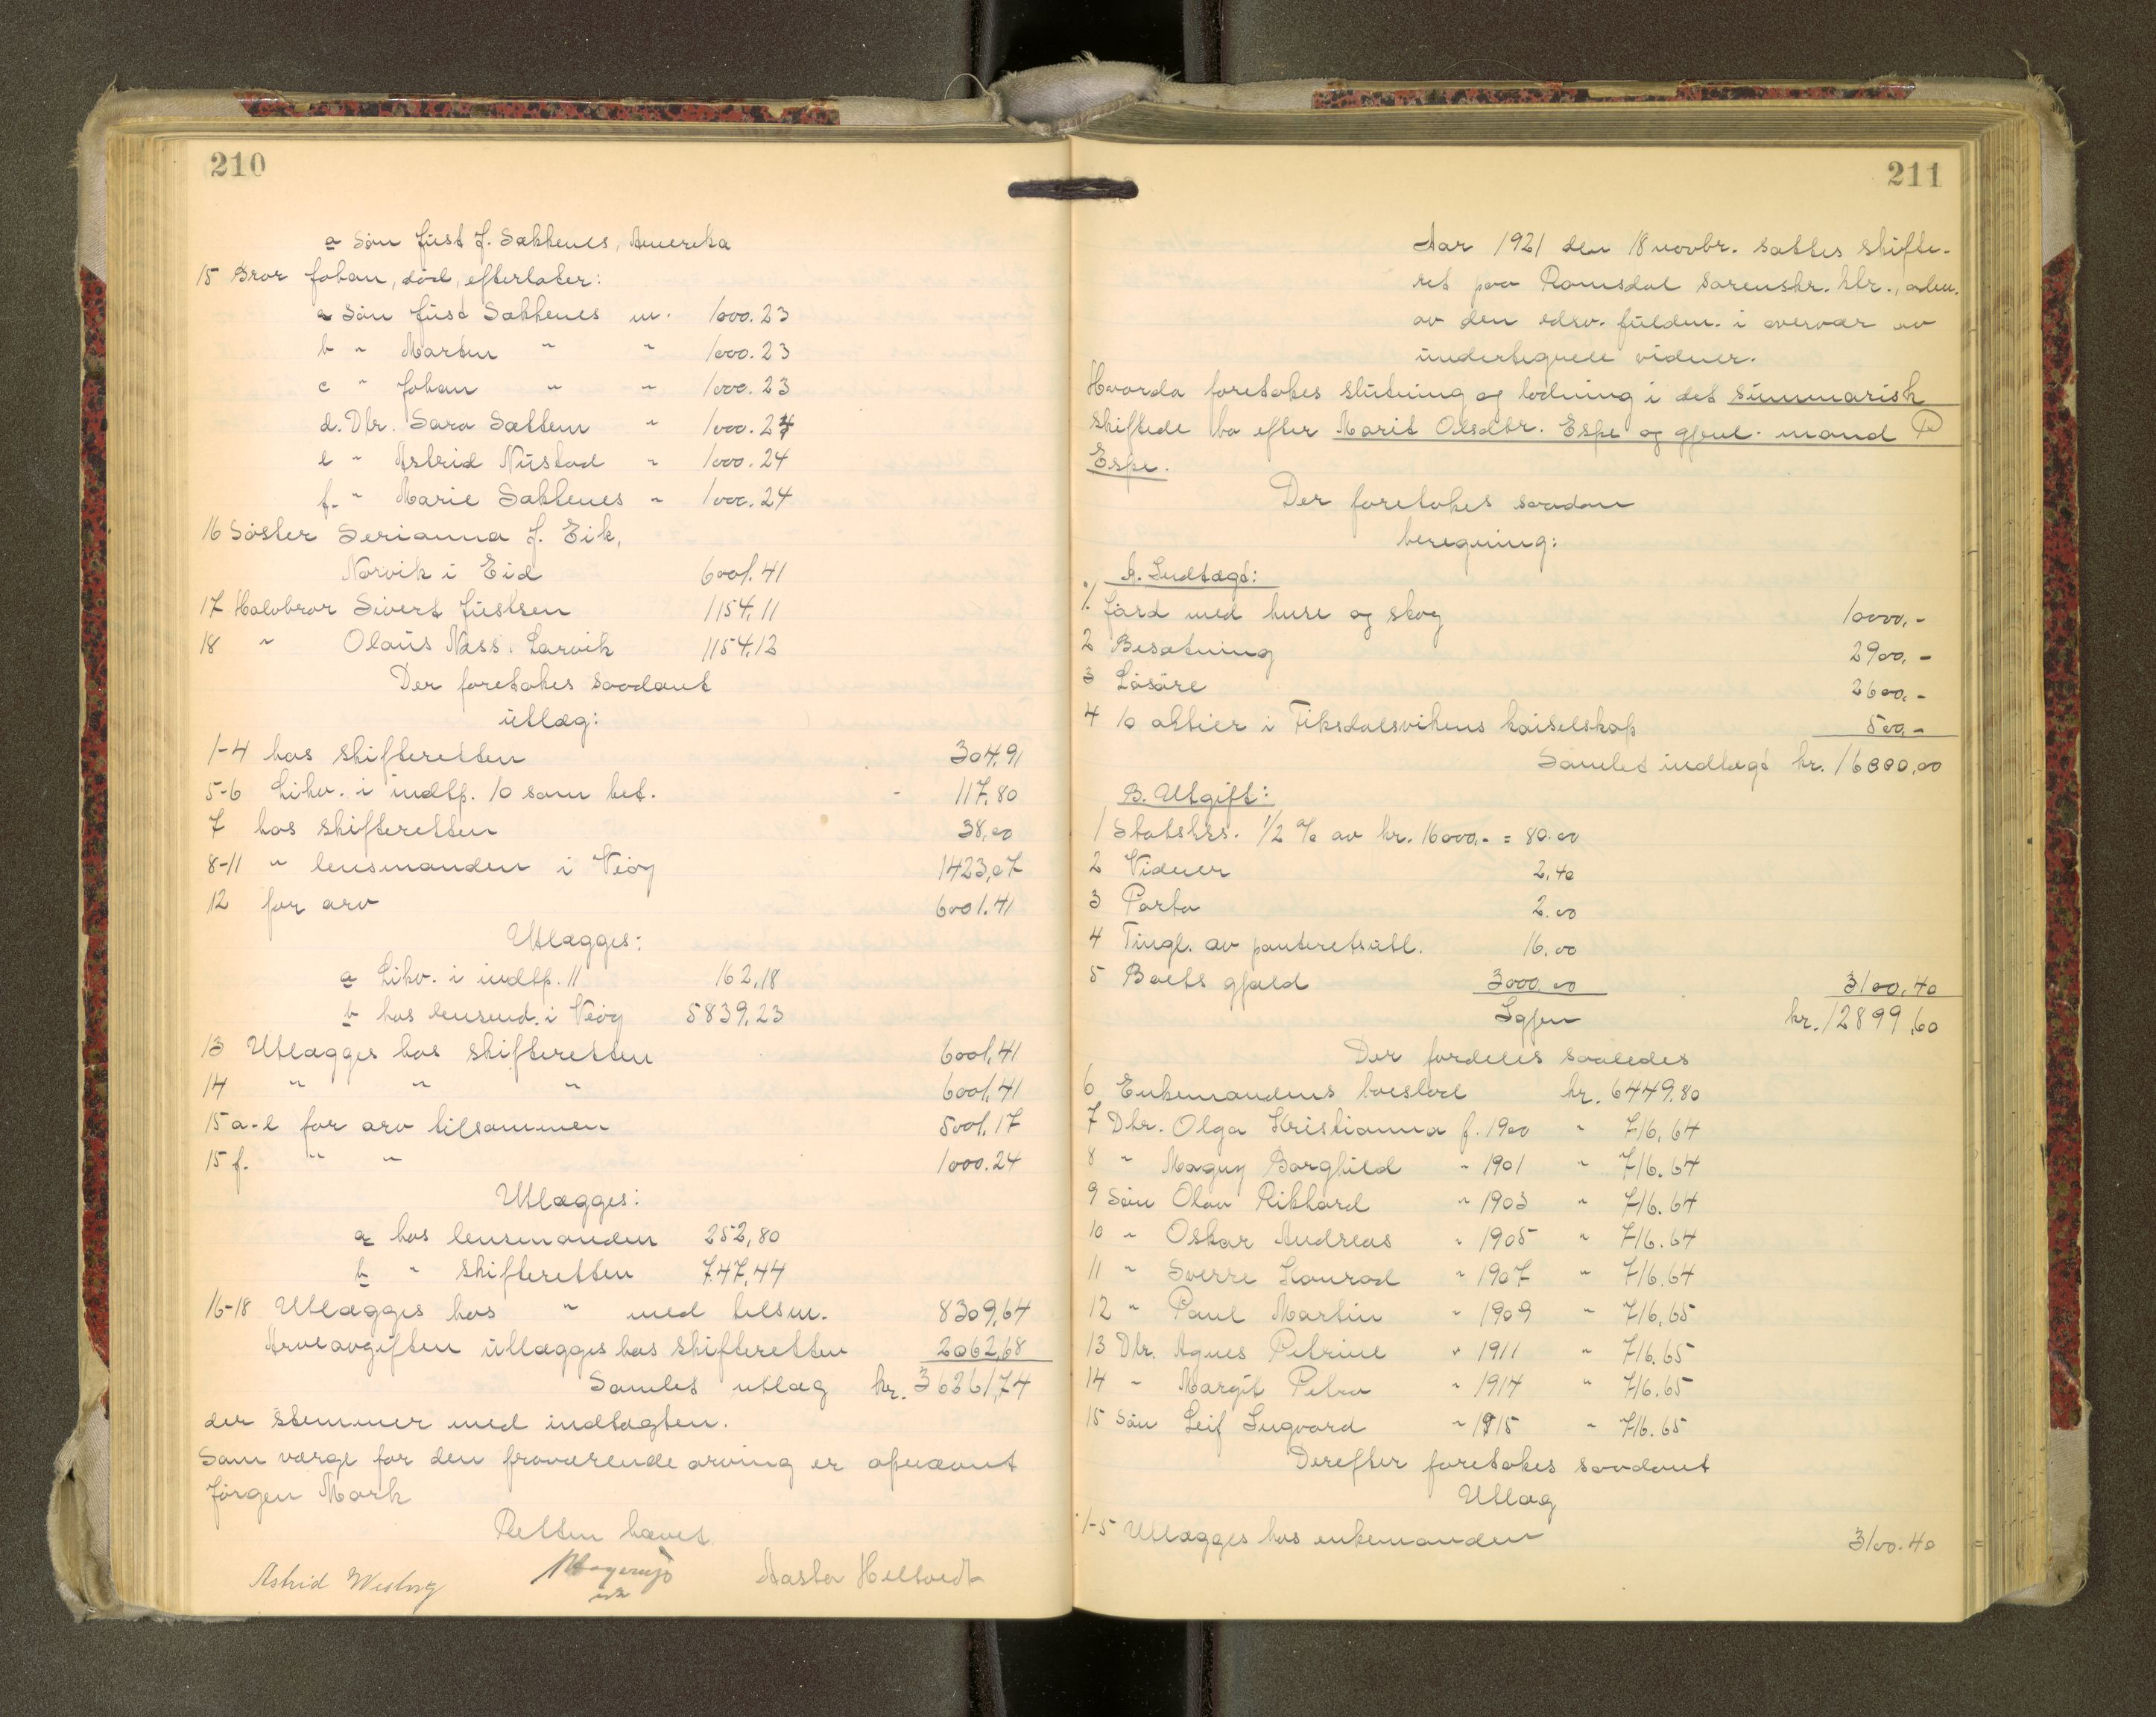 210
a Søn Just J. Sækkenes, Amerika
15 Bror Johan, død, efterlater:
a Søn Just Sækkenes m. 1000.23
b " Martin " " 1000.23
c " Johan " " 1000.23
d. Dtr. Sara Sættem " 1000.24
e " Astrid Nustad " 1000.24
f. " Marie Sækkenes " 1000.24
16 Søster Serianna J. Eik,
Norvik i Eid 6001.41
17 Halvbror Sivert Justsen 1154.11
18 " Olaus Næss, Larvik 1154.12
Der foretokes saadant
utlæg:
1-4 hos skifteretten 304.91
5-6 Likv. i indtp. 10 som bet. - 117.80
7 hos skifteretten 38,00
8-11 " lensmanden i Veøy 1423,07
12 for arv 6001.41
Utlægges:
a Likv. i indtp. 11 162,18
b hos lensmd. i Veøy 5839,23
13 Utlægges hos skifteretten 6001,41
14 " " " 6001,41
15 a-e for arv tilsammen 5001,17
15 f. " " 1000.24
Utlægges:
a hos lensmanden 252,80
b " skifteretten 747,44
16-18 Utlægges hos " med tilsm. 8309,64
Arveavgiften utlægges hos skifteretten 2062,68
Samlet utlæg kr. 36261,74
der stemmer med indtægten.
Som værge for den fraværende arving er opnævnt
Jørgen Mork
Retten hævet.
Astrid Wesborg Aasta Heltvedt
211
Aar 1921 den 18 novbr. sattes skifte-
ret paa Romsdal sorenskr. ktr., adm.
av den edsv. fuldm. i overvær av
undertegnede vidner.
Hvorda foretokes slutning og lodning i det summarisk
skiftede bo efter Marit Olsdtr. Espe og gjenl. mand P
Espe.
Der foretokes saadan
beregning:
A. Indtægt:
1. Jord med huse og skog 10000.-
2 Besætning 2900.-
3 Løsøre 2600.-
4 10 aktier i Fiksdalsvikens kaiselskap 500.-
Samlet indtægt kr. 16000,00
B. Utgift:
1 Statsks. 1/2 % av kr. 16000.- = 80.00
2 Vidner 2.40
3 Porto 2.00
4 Tingl. av panteretsutl. 16.00
5 Boets gjæld 3000.00 3100.40
Igjen kr. 12899,60
Der fordeles saaledes
6 Enkemandens boeslod kr. 6449.80
7 Dtr. Olga Kristianna f. 1900 " 716.64
8 " Magny Borghild " 1901 " 716.64
9 Søn Olav Rikhard " 1903 " 716.64
10 " Oskar Andreas " 1905 " 716.64
11 " Sverre Konrad " 1907 " 716.64
12 " Paul Martin " 1909 " 716.65
13 Dtr. Agnes Petrine " 1911 " 716.65
14 " Margit Petra " 1914 " 716.65
15 Søn Leif Ingvard " 1915 " 716.65
Derefter foretokes saadant
Utlæg
1-5 Utlægges hos enkemanden 3100.40